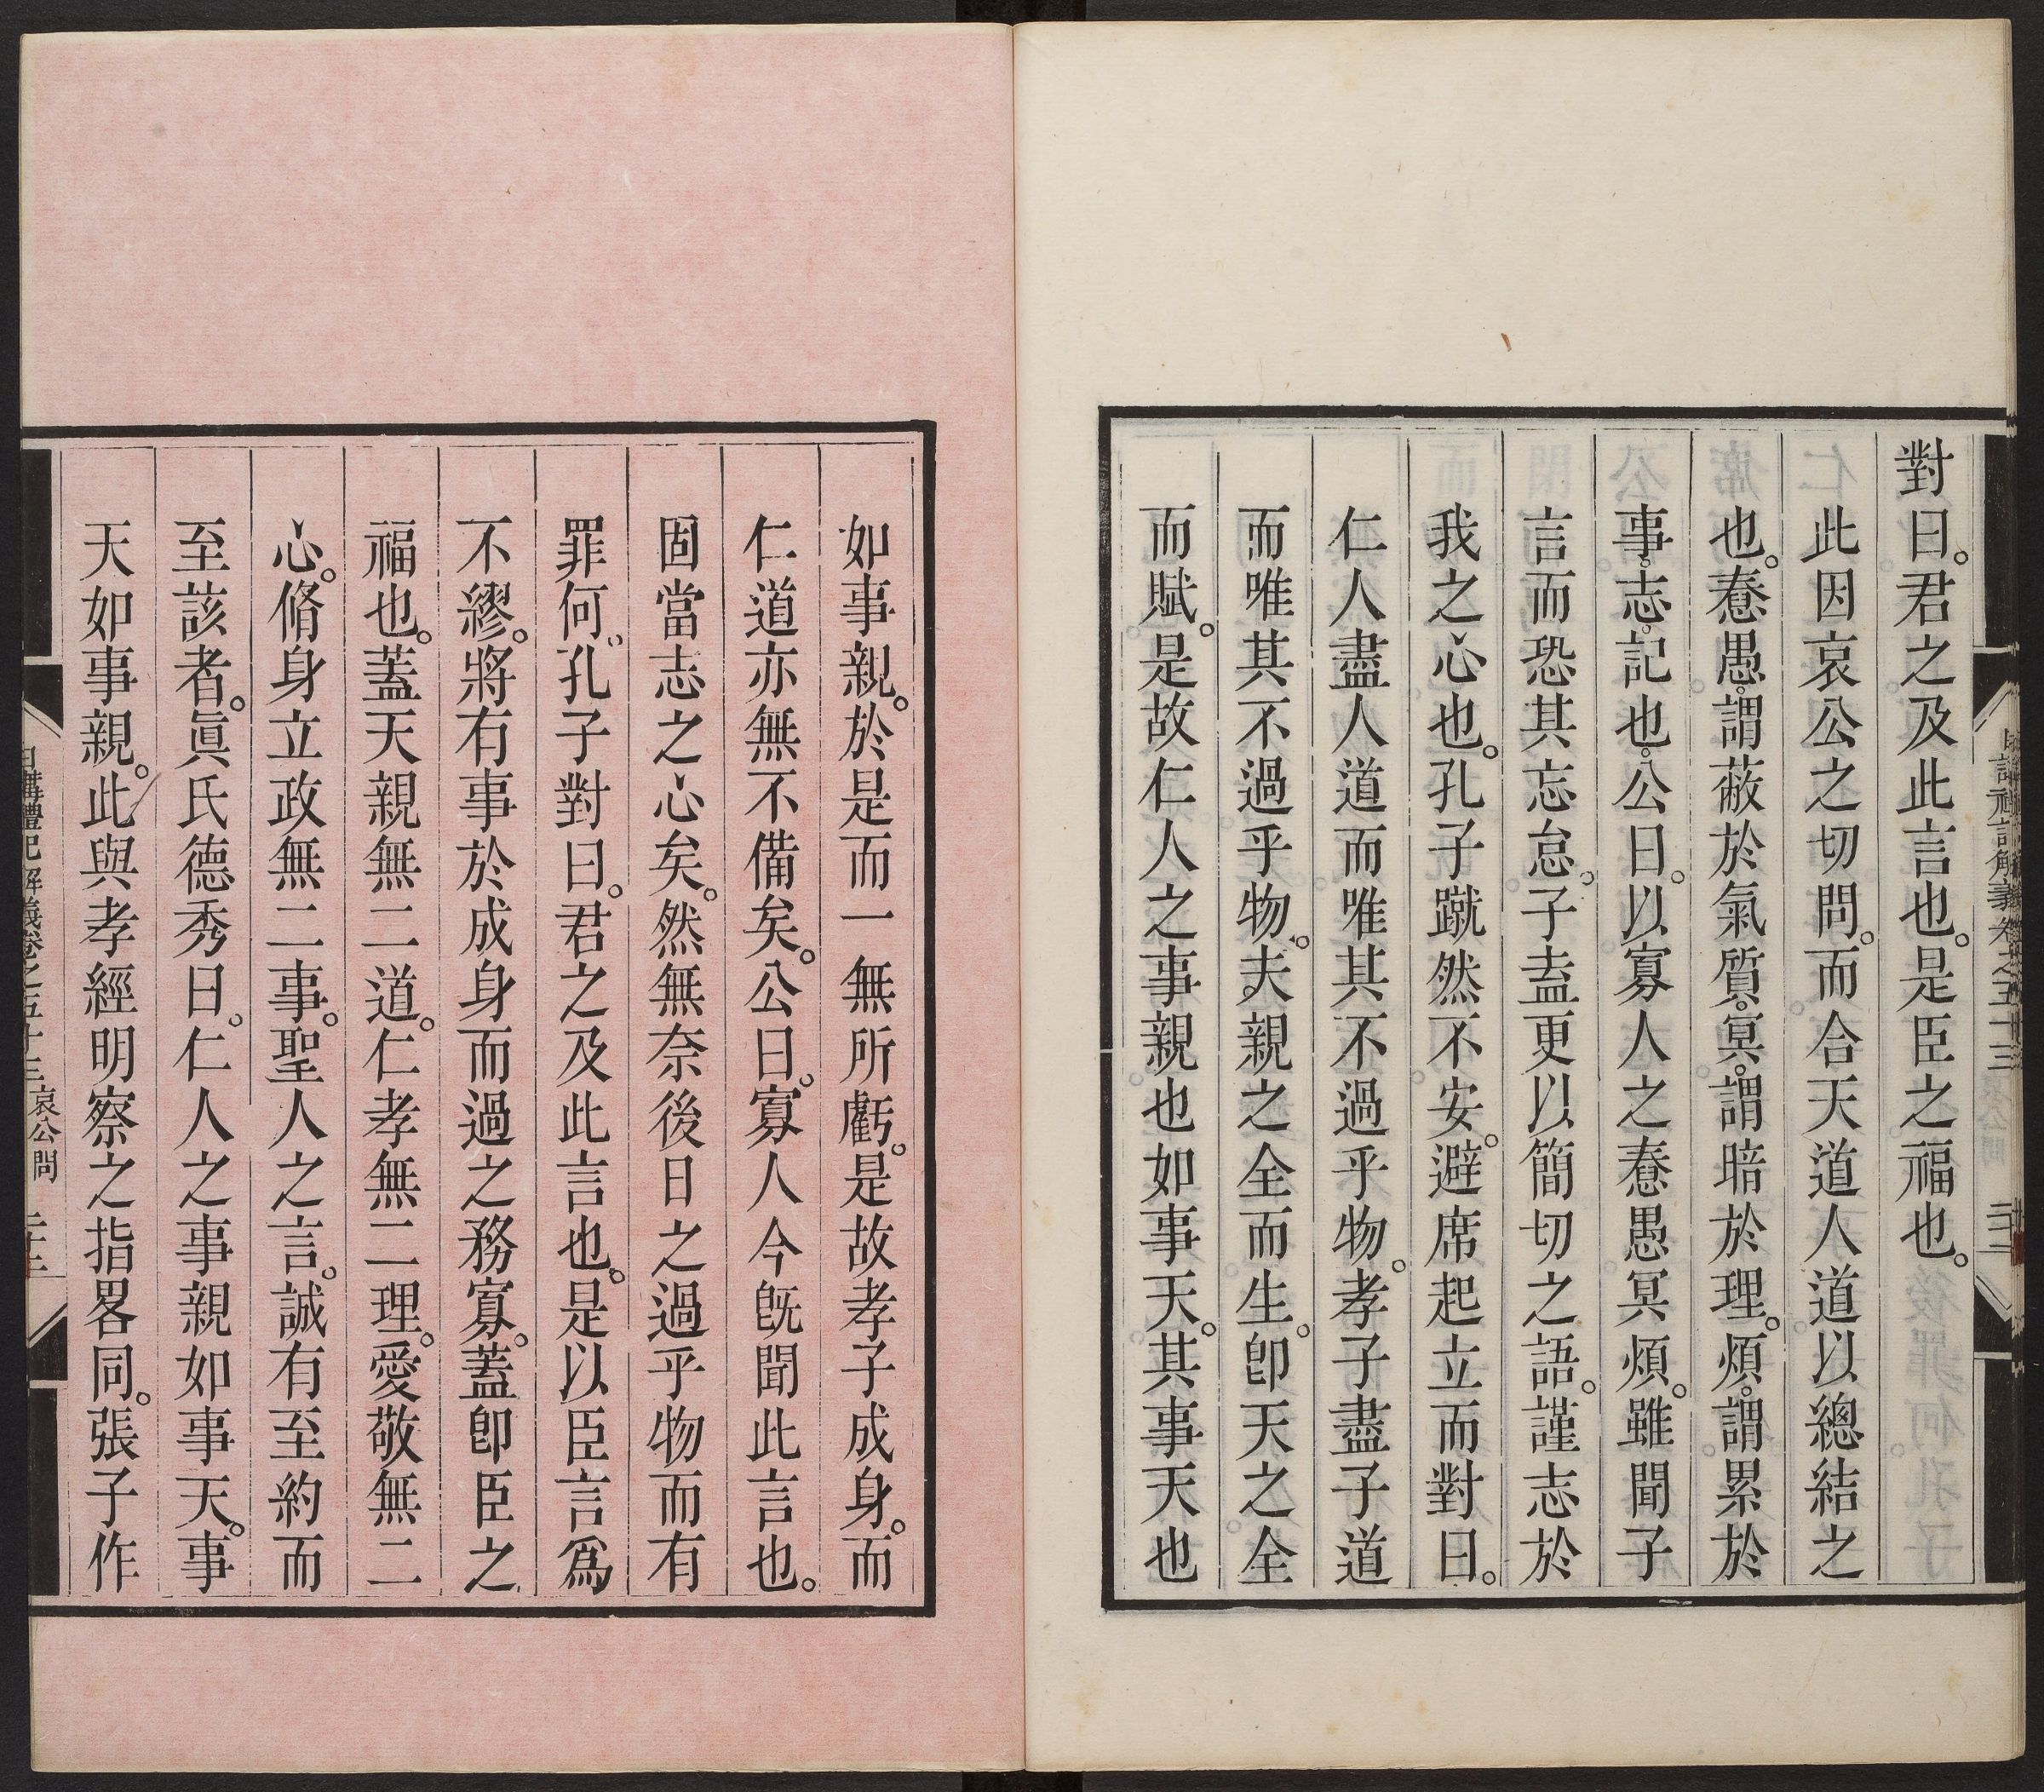 對曰。君之及此言也。是臣之福也。
此因哀公之切問。而合天道人道以總結之
也。惷愚。謂蔽於氣質。冥。謂暗於理。煩。謂累於
事。志。記也。公曰。以寡人之惷愚冥煩。雖聞子
言而恐其忘怠。子盍更以簡切之語。謹志於
我之心也。孔子蹴然不安。避席起立而對曰。
仁人盡人道而唯其不過乎物。孝子盡子道
而唯其不過乎物。夫親之全而生。卽天之全
而賦。是故仁人之事親也如事天。其事天也
如事親。於是而一無所虧。是故孝子成身。而
仁道亦無不備矣。公曰。寡人今旣聞此言也。
固當志之心矣。然無奈後日之過乎物而有
罪何。孔子對曰。君之及此言也。是以臣言爲
不繆。將有事於成身而過之務寡。蓋卽臣之
福也。蓋天親無二道。仁孝無二理。愛敬無二
心。脩身立政無二事。聖人之言。誠有至約而
至該者。眞氏德秀曰。仁人之事親如事天。事
天如事親。此與孝經明察之指畧同。張子作
日講禮記解義卷之五十三 哀公問